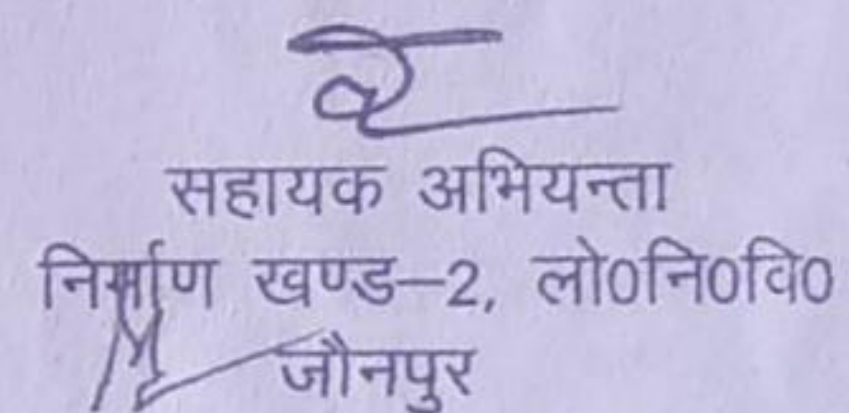 सहायक अभियन्ता
निर्माण खण्ड–2, लो०नि०वि०
जौनपुर